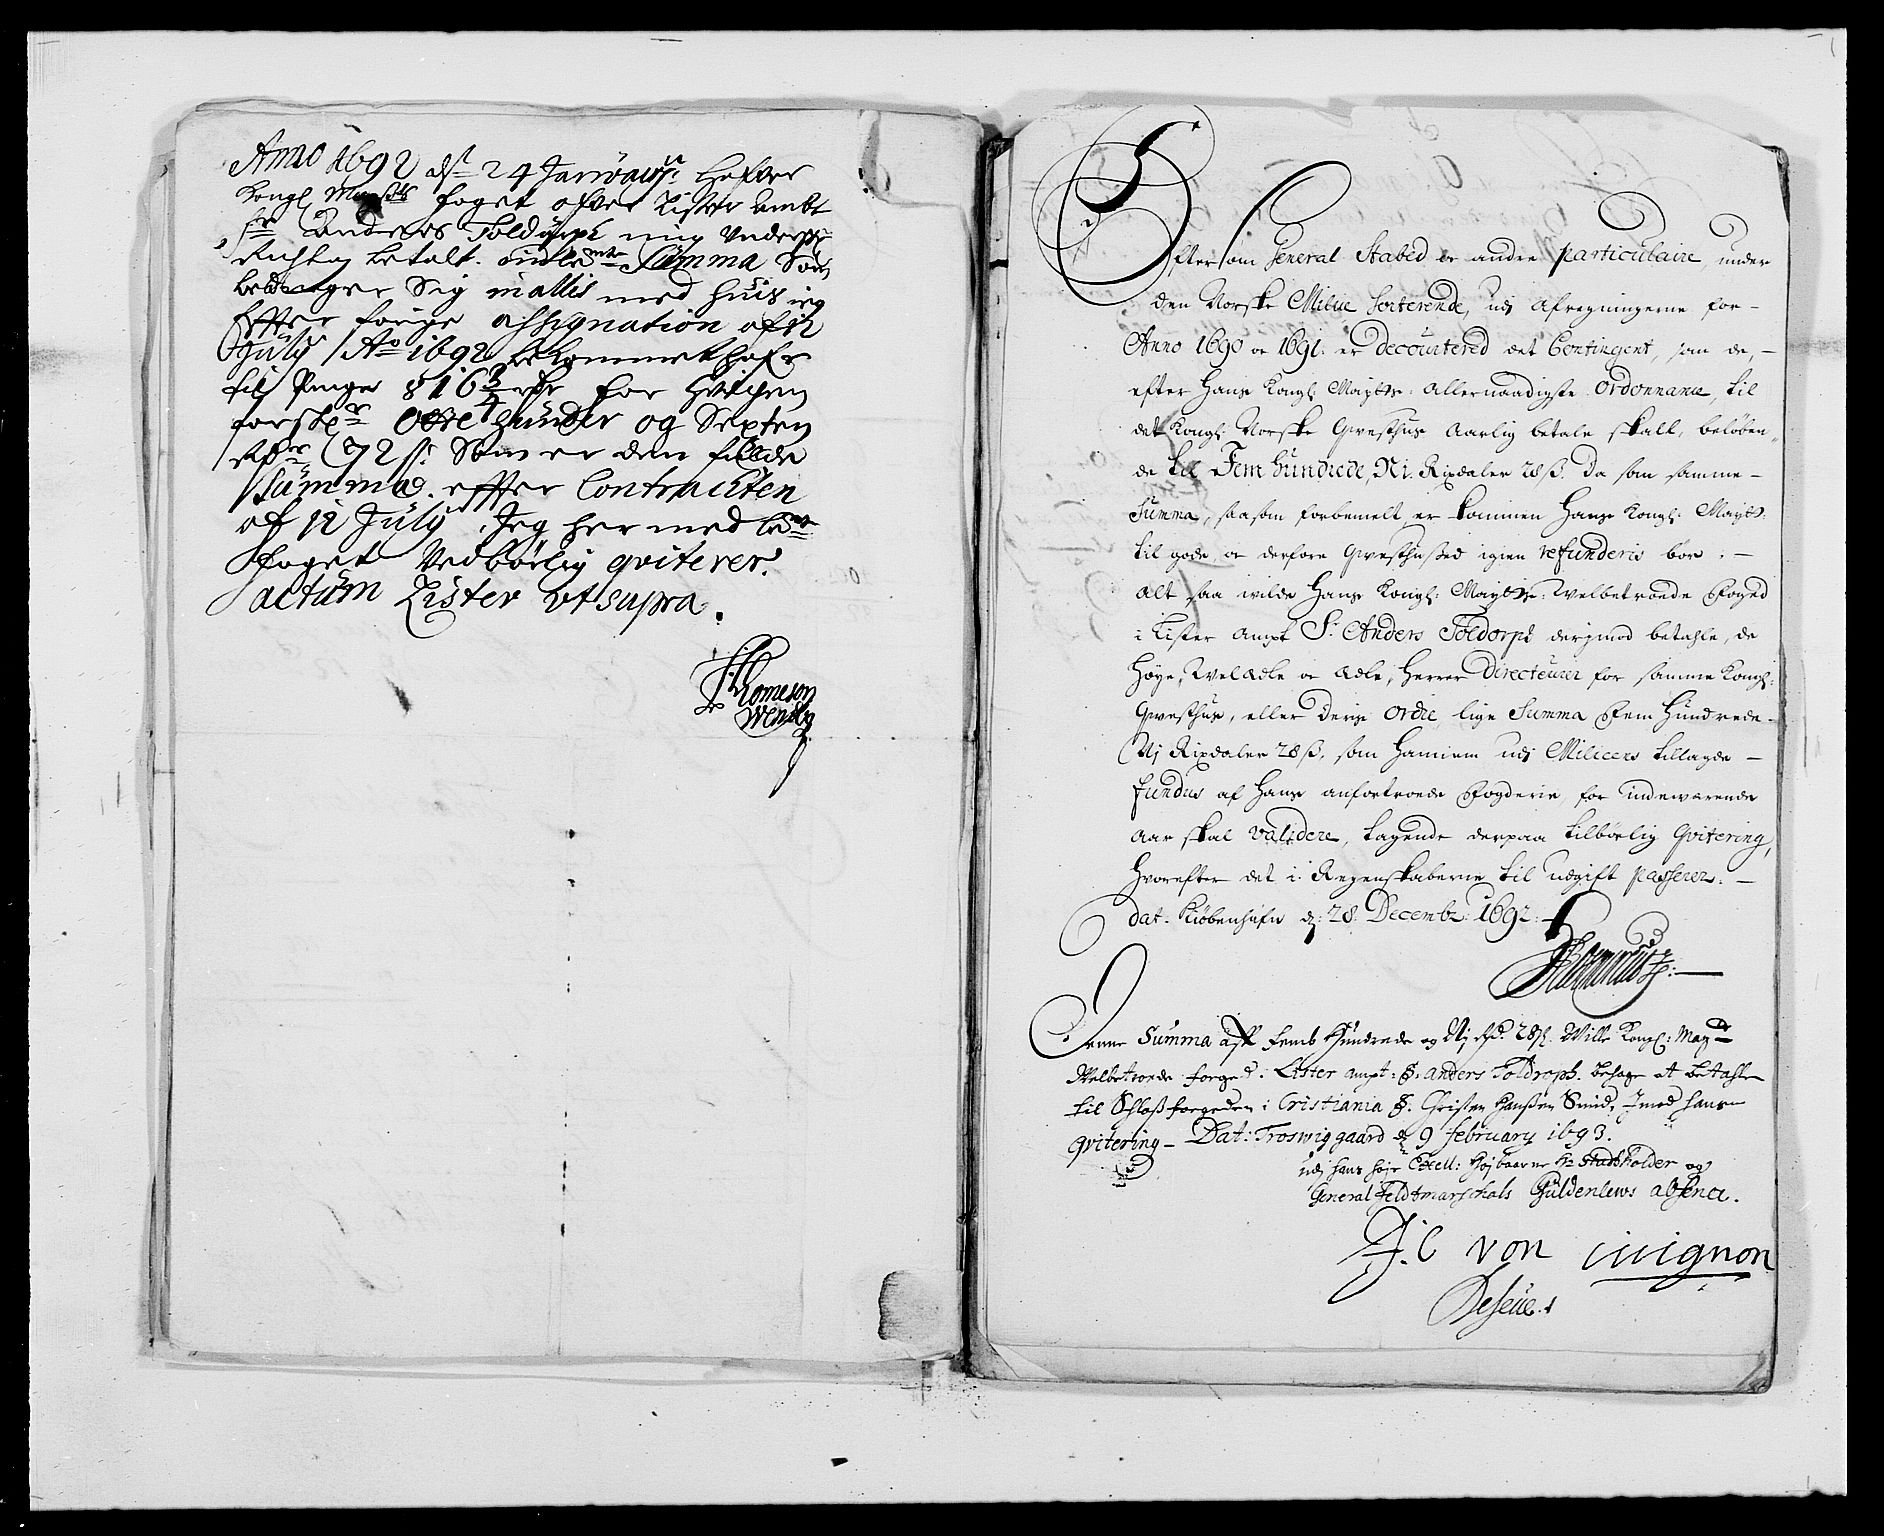 Anno 1692 d. 24 Januarij hafver
Kongl Maysts foget ofver Lister Ambt
Sr Anders Toldorph mig underschr
Rigtig betalt. Summa Som
bedrager Sig in allis med huis ieg
Effter forige assignation af 12
July Ao 1692 bekommet hafr
til Penge 816 3/4 rdr for hvilchen
forskr Otte hundr og Sexten
Rdr 72 s: Som er den fulde
Summa effter Contracten
af 12 July Jeg her med bemte
foget Vedbørlig qviterer.
actum Lister ut supra.
Thomeson
Efter som General Stabed oc andre particulaire, under
den Norske Milice sorterende, udj afregningerne for
Anno 1690 oc 1691: er decourtered det Contingent, som de,
efter Hans Kongl: Maytts: allernaadigste ordonnance, til
det Kongl: Norske Qvesthus Aarlig betale skall, beløben-
de til Fem hundrede, Ni Rixdaler 28 ß. Da som samme
Summa, saasom forbemelt er kommen Hans Kongl: Maytt:
til gode, oc derfore Qvesthused igien refunderis bør:
Alt saa wilde Hans Kongl: Maytts: Welbetroede Foged
i Lister Ampt Sr. Anders Toldorph derjmod betahle, de
Høye, WelÆdle oc Ædle, Herrer Directeurer for samme Kongl:
Qvesthus, eller deris ordre, lige Summa Fem Hundrede
Nj Rixdaler 28 ß, som Hannem udj Milicens tillagde
fundus af Hans anfortroede Fogderie, for indewærende
Aar skal validere, tagende derpaa tilbørlig Qvitering,
Hvorefter det i Regenskaberne til udgift passerer.
Dat. Kiøbenhafn d: 28. Decembr: 1692.
Denne Summa aff Femb Hundrede og Nj rd. 28 ß. Wille Kongl: Mayts
Welbetroede foeged i Lister ampt: Sr. anders Toldroph. behage at betahle
til Schloßfoegeden i Cristiania Sr. Christen Hanßen Smid, Jmod hans
qvitering – Dat: Froswiggaard d 9 february 1693.
udj hans høje Excell: Højbaarne Hr Stadtholder og
General Feldtmarschals Guldenlews absence.
J. C von Cicignon